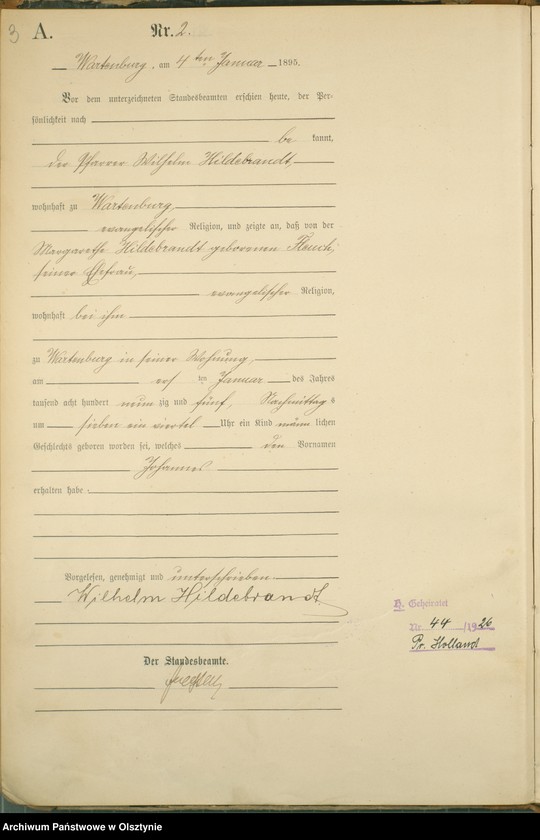 3 A. Nr. 2.
Wartenburg, am 4 ten Januar 1895.
Vor dem unterzeichneten Standesbeamten erschien heute, der Per-
sönlichkeit nach
be kannt,
der Pfarrer Wilhelm Hildebrandt,
wohnhaft zu Wartenburg,
evangelischer Religion, und zeigte an, daß von der
Margarethe Hildebrandt geborenen
seiner Ehefrau,
evangelischer Religion,
wohnhaft bei ihm
zu Wartenburg in seiner Wohnung,
am ten Januar des Jahres
tausend acht hundert neun zig und fünf, Nachmittag s
um sieben ein viertel Uhr ein Kind männ lichen
Geschlechts geboren worden sei, welches den Vornamen
Johannes
erhalten habe.
Vorgelesen, genehmigt und unterschrieben
Wilhelm Hildebrandt
H. Geheiratet
Nr. 44 /1926
Pr. Holland
Der Standesbeamte.
Archiwum Państwowe w Olsztynie